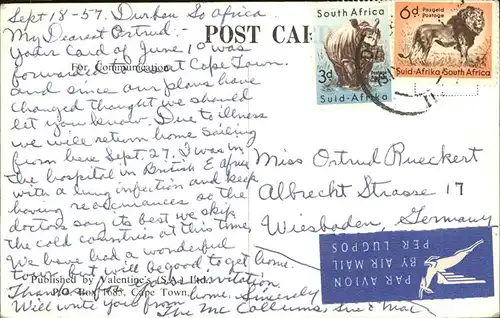 Sept 18-57. Durban So africa
My Dearest Ortrud:-
Your Card of June 10 was
forwarded to us at Cape Town.
and since our plans have
changed thought we should
let you know. Due to illness
we will return home sailing
from here Sept. 27. I was in
the hospital in British E africa
with a lung infection and keep
having reoccurances so the
doctors say its best we skip
the cold countries at this time,
We have had a wonderful
tour but will be good to get home.
Thanks for your invitation.
Will write you from home. Sincerely
The McCallums, Sue & Mac
POST CAR
For Communication
Published by Valentine's (S.A.) Ltd.,
P.O. Box 1685, Cape Town.
South Africa
3d
Suid-Afrika
6d Posgeld
Postage
Suid-Afrika South Africa
Miss Ortrud Rueckert
Albrecht Strasse 17
Wiesbaden, Germany
PAR AVION
BY AIR MAIL
PER LUGPOS